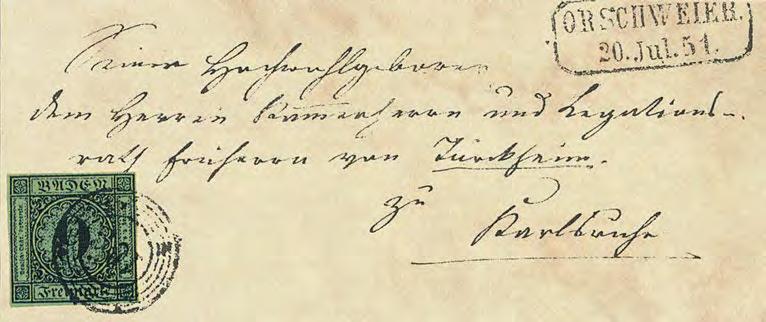 ORSCHWEIER.
20. Jul. 51.
Seiner Hochwohlgeboren
dem Herrn Kammerherrn und Legations-
rath Freiherrn von Türckheim.
zu
Karlsruhe
BADEN
6
Freimarke